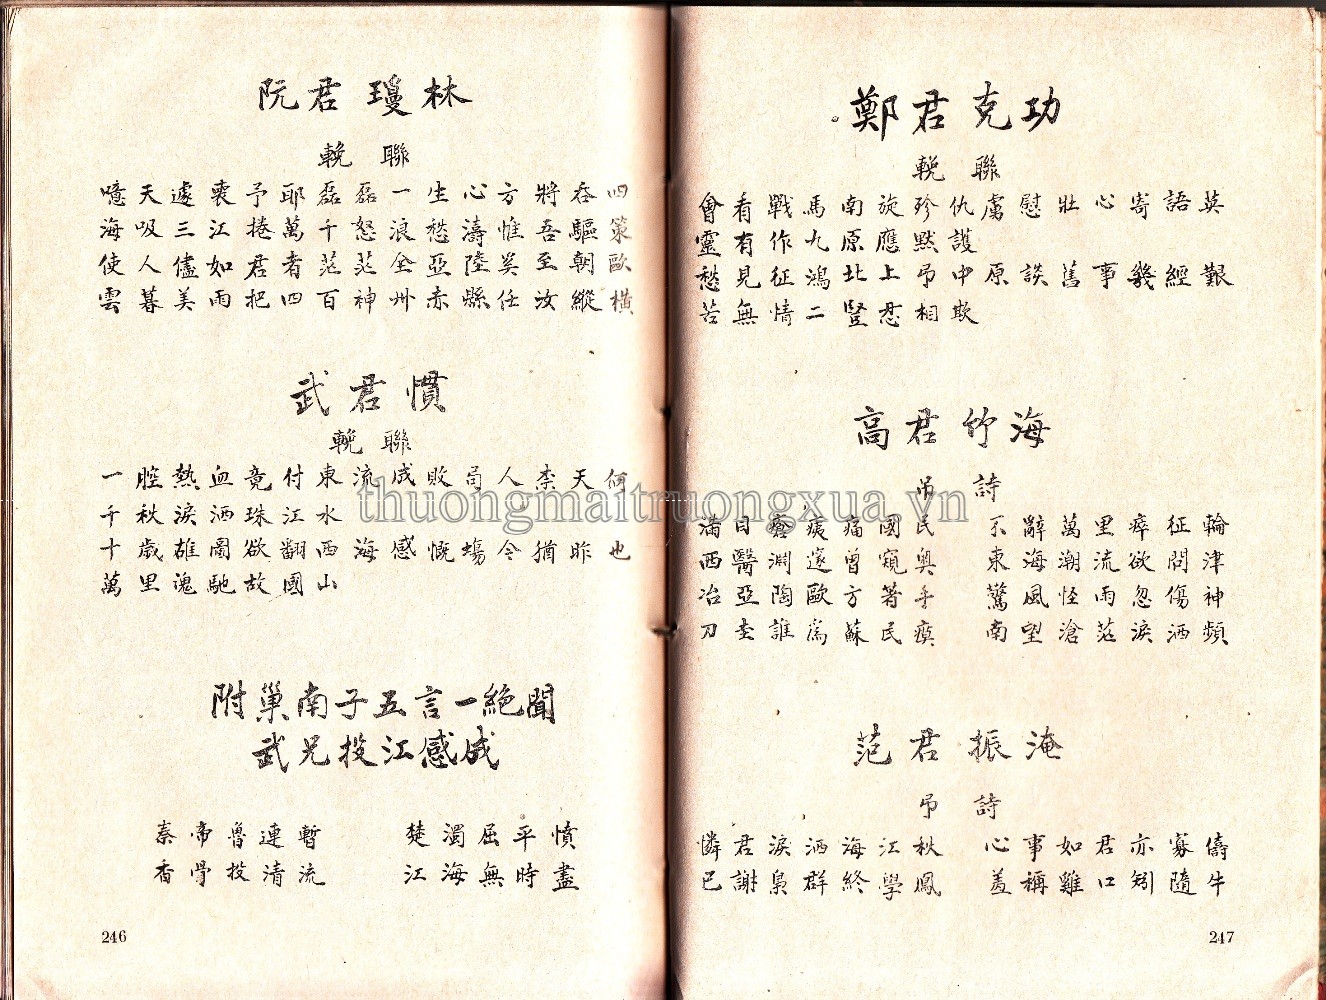 阮君瓊林
輓聯
噫天遽喪予耶磊磊一生心方將吞四
海吸三江捲萬千怒浪愁濤惟吾驅策
使人儘如君者茫茫全亞陸奚至朝歐
雲暮美雨把四百神州赤縣任汝縱橫
武君慣
輓聯
一腔熱血竟付東流成敗局人李天何
千秋淚洒珠江水
十歲雄圖欲翻西海感慨蝪令猶昨也
萬里魂馳故國山
附巢南子五言一絶聞
武兄投江感成
秦帝魯連暫 楚濁屈平憤
香骨投清流 江海無時盡
246
鄭君克功
輓聯
會看戰馬南旋殄仇虜慰壯心寄語英
靈有作九原應默護
愁見征鴻北上弔中原談舊事幾經艱
苦無情二豎忍相欺
高君竹海
吊詩
滿目瘡痍痛國民 不辭萬里瘁征輪
西醫淵邃曾窺奧 東海潮流欲問津
冶亞陶歐方著手 驚風怪雨忽傷神
刀圭誰爲蘇民瘼 南望滄茫淚洒頻
范君振淹
弔詩
憐君淚洒海江秋 心事如君亦寡儔
已謝梟群終學鳳 羞稱雞口矧隨牛
247
thuongmaitruongxua.vn